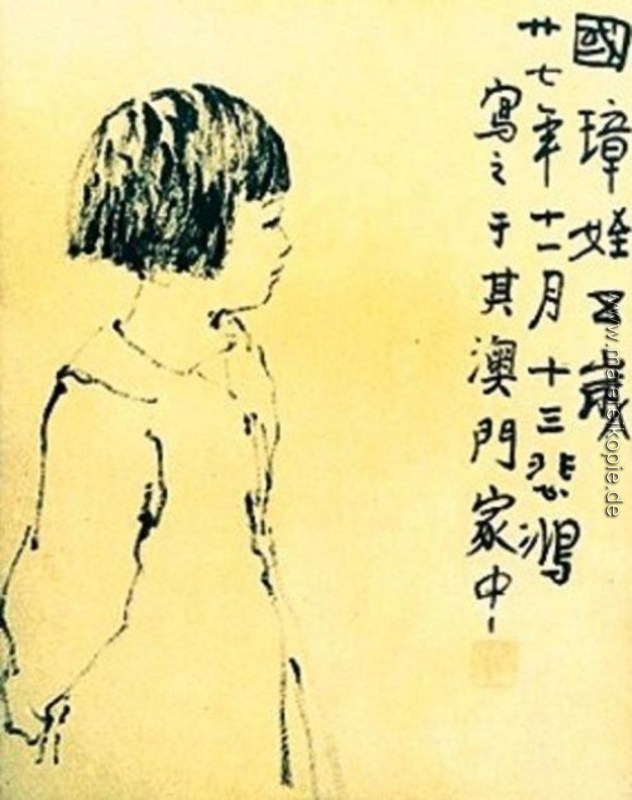 國璋姪五歲
廿七年十一月十三悲鴻
寫之于其澳門家中
www.malereikopie.de